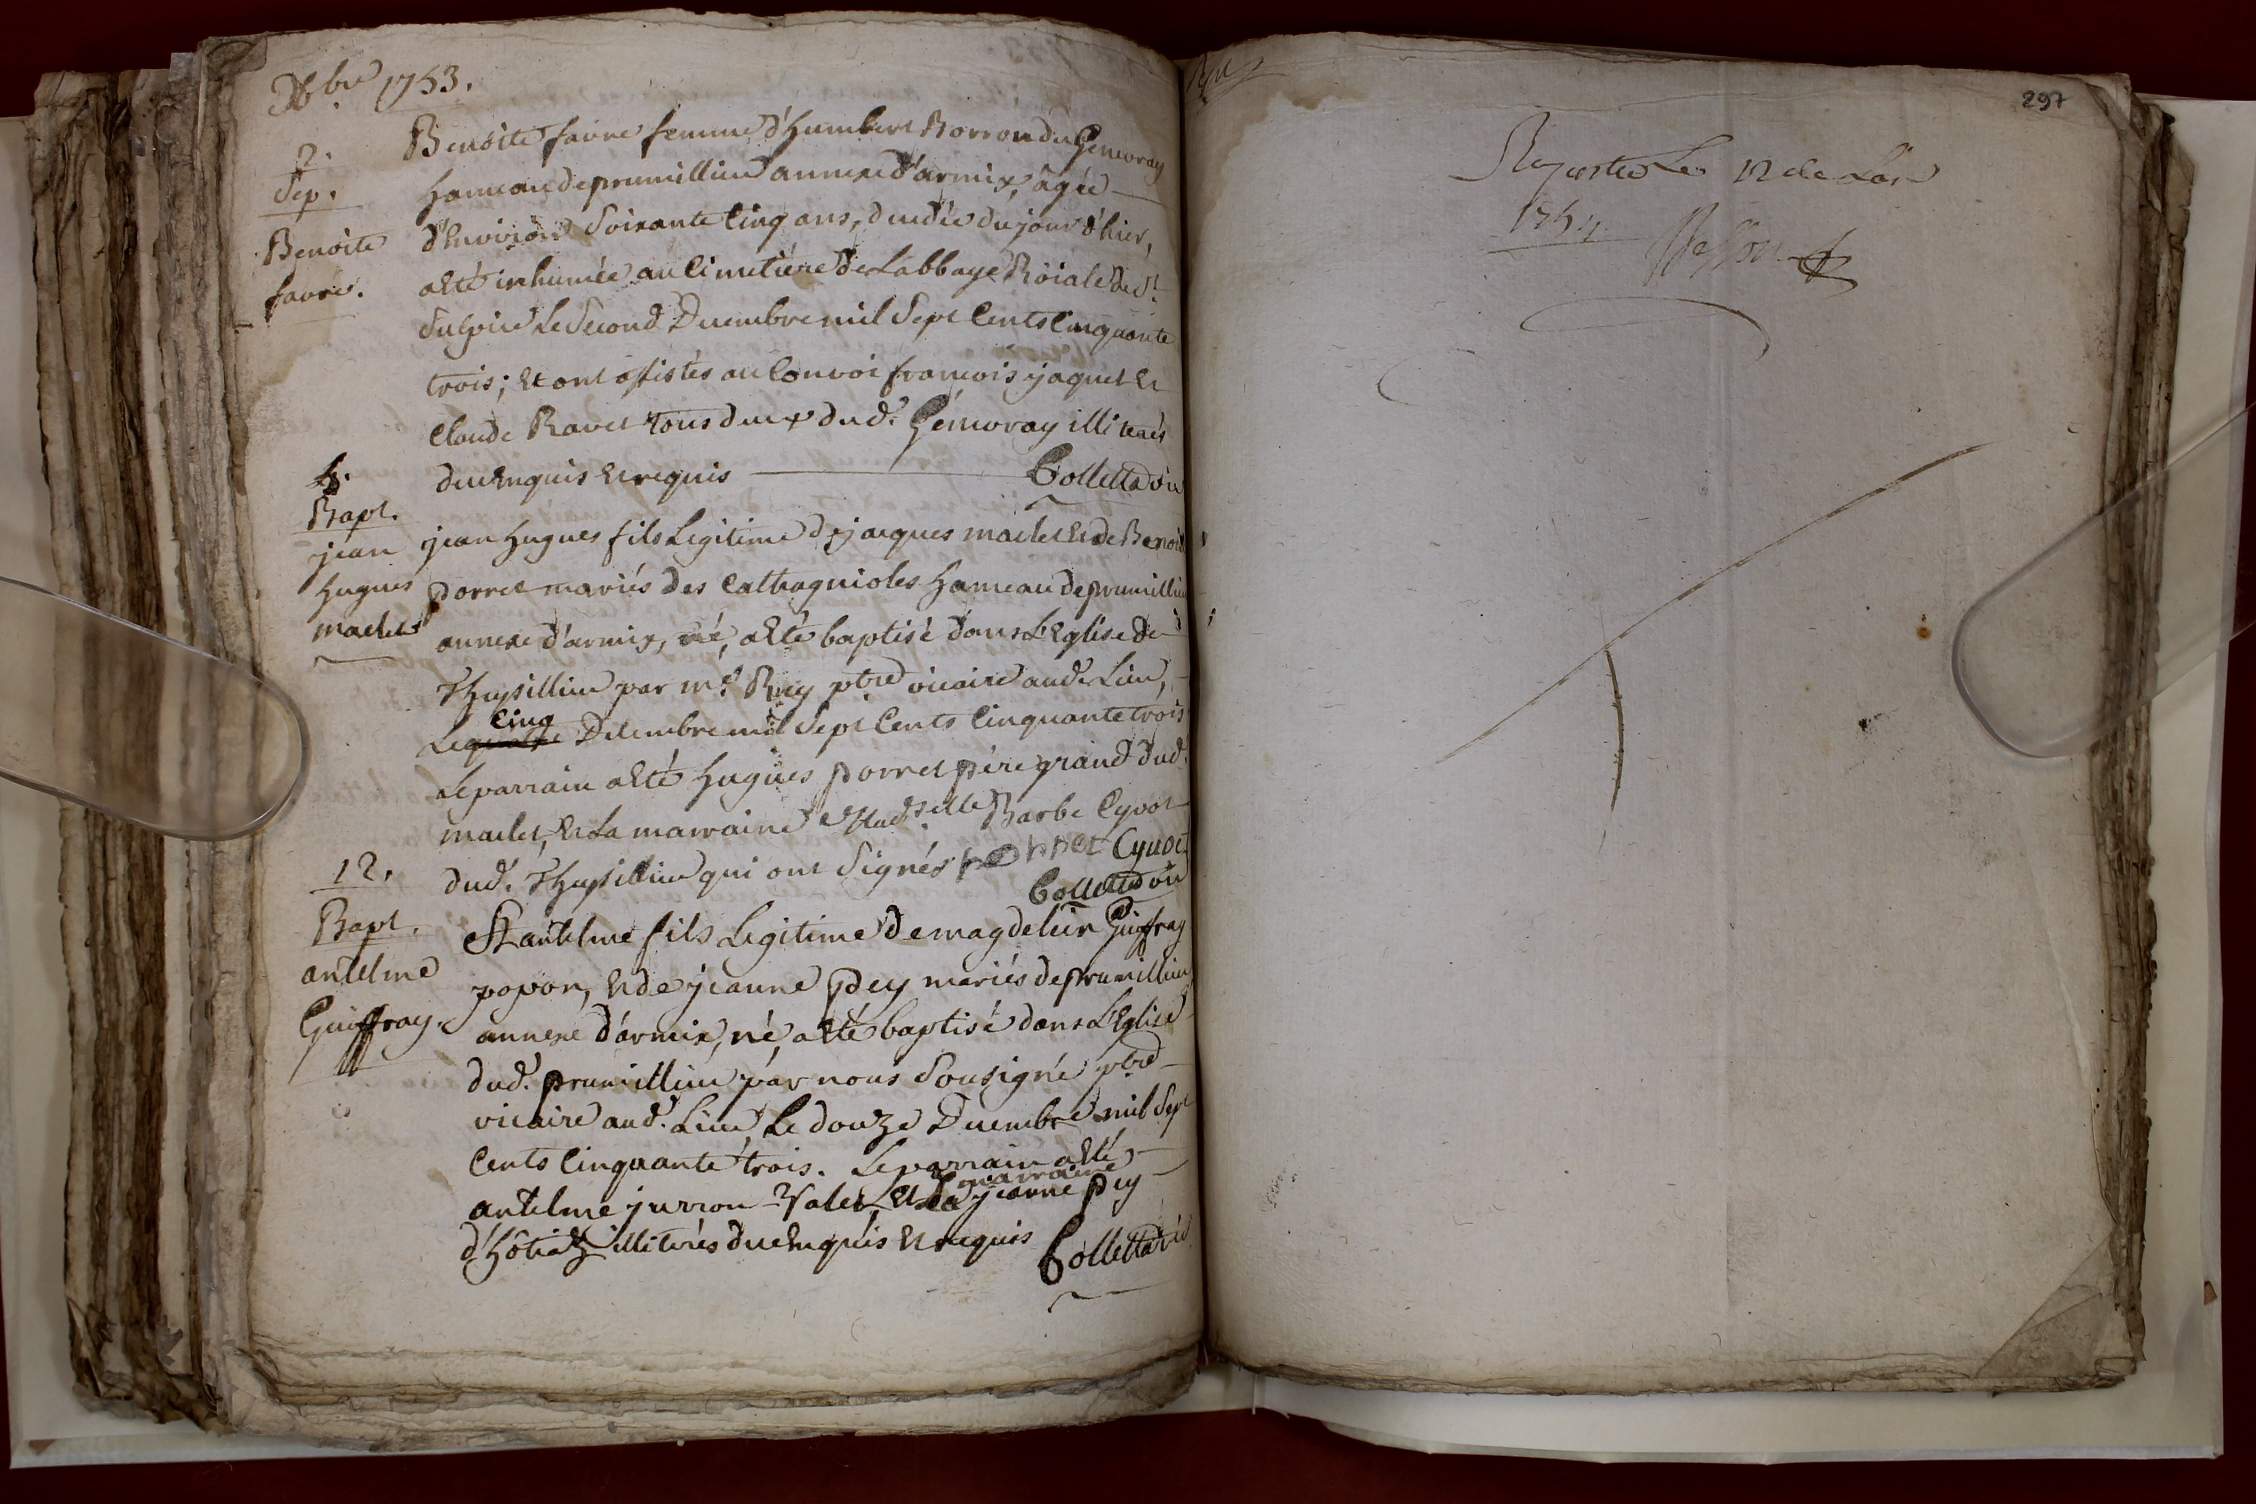 Xbre 1753.
2.
Sep.
Benoite
favre.
Benoite favre femme d'humbert Borron du Gemoray
hameau de prumillieu annexe d'armix, âgée
d'Environ Soixante Cinq ans, décédée du jour d'hier,
a Eté inhumée au Cimetière de Labbaye Roiale de St.
Sulpice Le Second Decembre mil Sept Cents Cinquante
trois; Et ont assistés au Convoi francois jaquet Et
Claude Ravet tous deux dud. Gémoray illiterés
de ce Enquis Et requis Colletta vic
5.
Bapt.
jean
hugues
maclet
jean hugues fils Legitime de jacques maclet Et de Benoite
porret mariés des Cathagnioles hameau de prumillieu
annexe d'armix, né, a Eté baptisé dans L'Eglise de
Thezillieu par mr. Rey ptre vicaire aud. Lieu,
Le quatre cinq Decembre mil Sept Cents Cinquante trois
Le parrain a Eté hugues porret père grand dud.
maclet, Et La marraine Madselle Barbe Cyvot
dud. Thezillieu qui ont Signés porret Cyvoct
Colletta vic
12.
Bapt.
antelme
Guiffray.
antelme fils Legitime de magdelein Guiffray
popon, Et de jeanne pey mariés de prumillieu
annexe d'armix, né, a Eté baptisé dans L'Eglise
dud. prumillieu par nous Sousigné ptre
vicaire aud. Lieu, Le douze Decembre mil Sept
Cents Cinquante trois. Le parrain a Eté
antelme jurron Valet, Et La marraine jeanne pey
d'hôtiaz illiterés de ce Enquis Et requis Colletta vic
297
1754